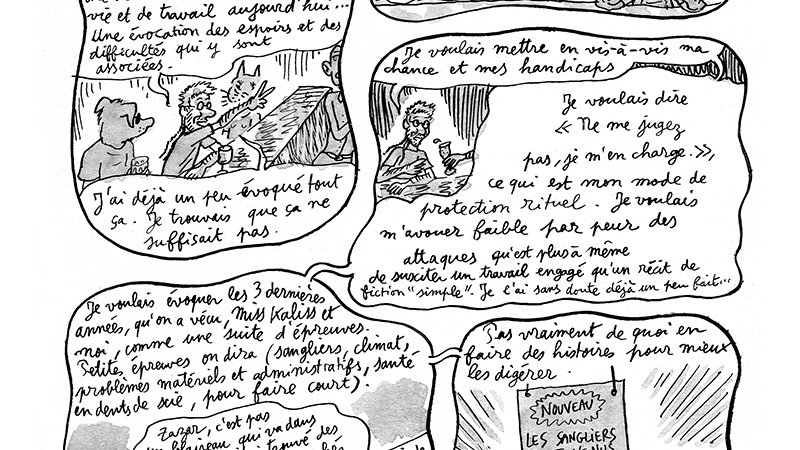 vie et de travail aujourd'hui...
Une évocation des espoirs et des
difficultés qui y sont
associées.
J'ai déjà un peu évoqué tout
ça. Je trouvais que ça ne
suffisait pas.
Je voulais mettre en vis-à-vis ma
chance et mes handicaps
Je voulais dire
« Ne me jugez
pas, je m'en charge. »,
ce qui est mon mode de
protection rituel. Je voulais
m'avouer faible par peur des
attaques qu'est plus à même
de susciter un travail engagé qu'un récit de
fiction "simple". Je l'ai sans doute déjà un peu fait...
Je voulais évoquer les 3 dernières
années, qu'on a vécu, Miss Kaliss et
moi, comme une suite d'épreuves.
Petites épreuves on dira (sangliers, climat,
problèmes matériels et administratifs, santé
en dents de scie, pour faire court).
Zazar, c'est pas
blaireau qui va dans
trouvé des
Pas vraiment de quoi en
faire des histoires pour mieux
les digérer.
NOUVEAU
LES SANGLIERS